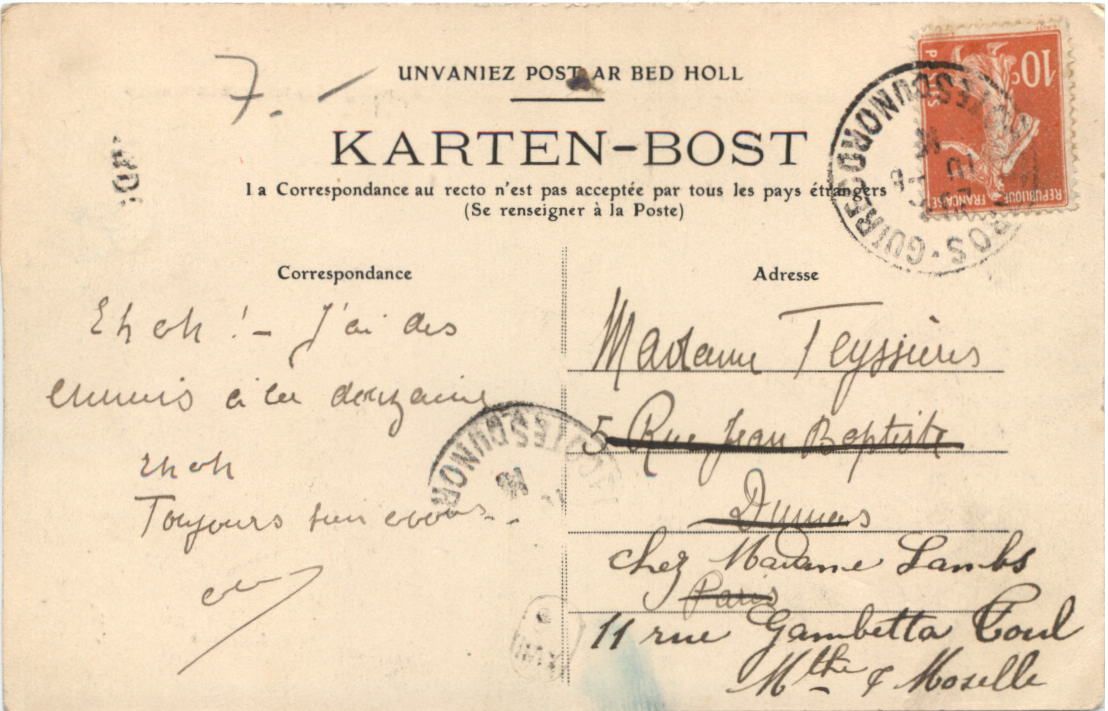 7. –
UNVANIEZ POST AR BED HOLL
KARTEN-BOST
La Correspondance au recto n'est pas acceptée par tous les pays étrangers
(Se renseigner à la Poste)
10c
POSTES
REPUBLIQUE FRANÇAISE
PERROS-GUIREC
COTES DU NORD
Correspondance
Eh eh ! – J'ai des
ennuis à la douzaine
eh eh
Toujours
COTES DU NORD
Adresse
Madame Teyssières
5 Rue Jean Baptiste
Dumas
chez Madame Lambs
Paris
11 rue Gambetta Toul
Mthe & Moselle